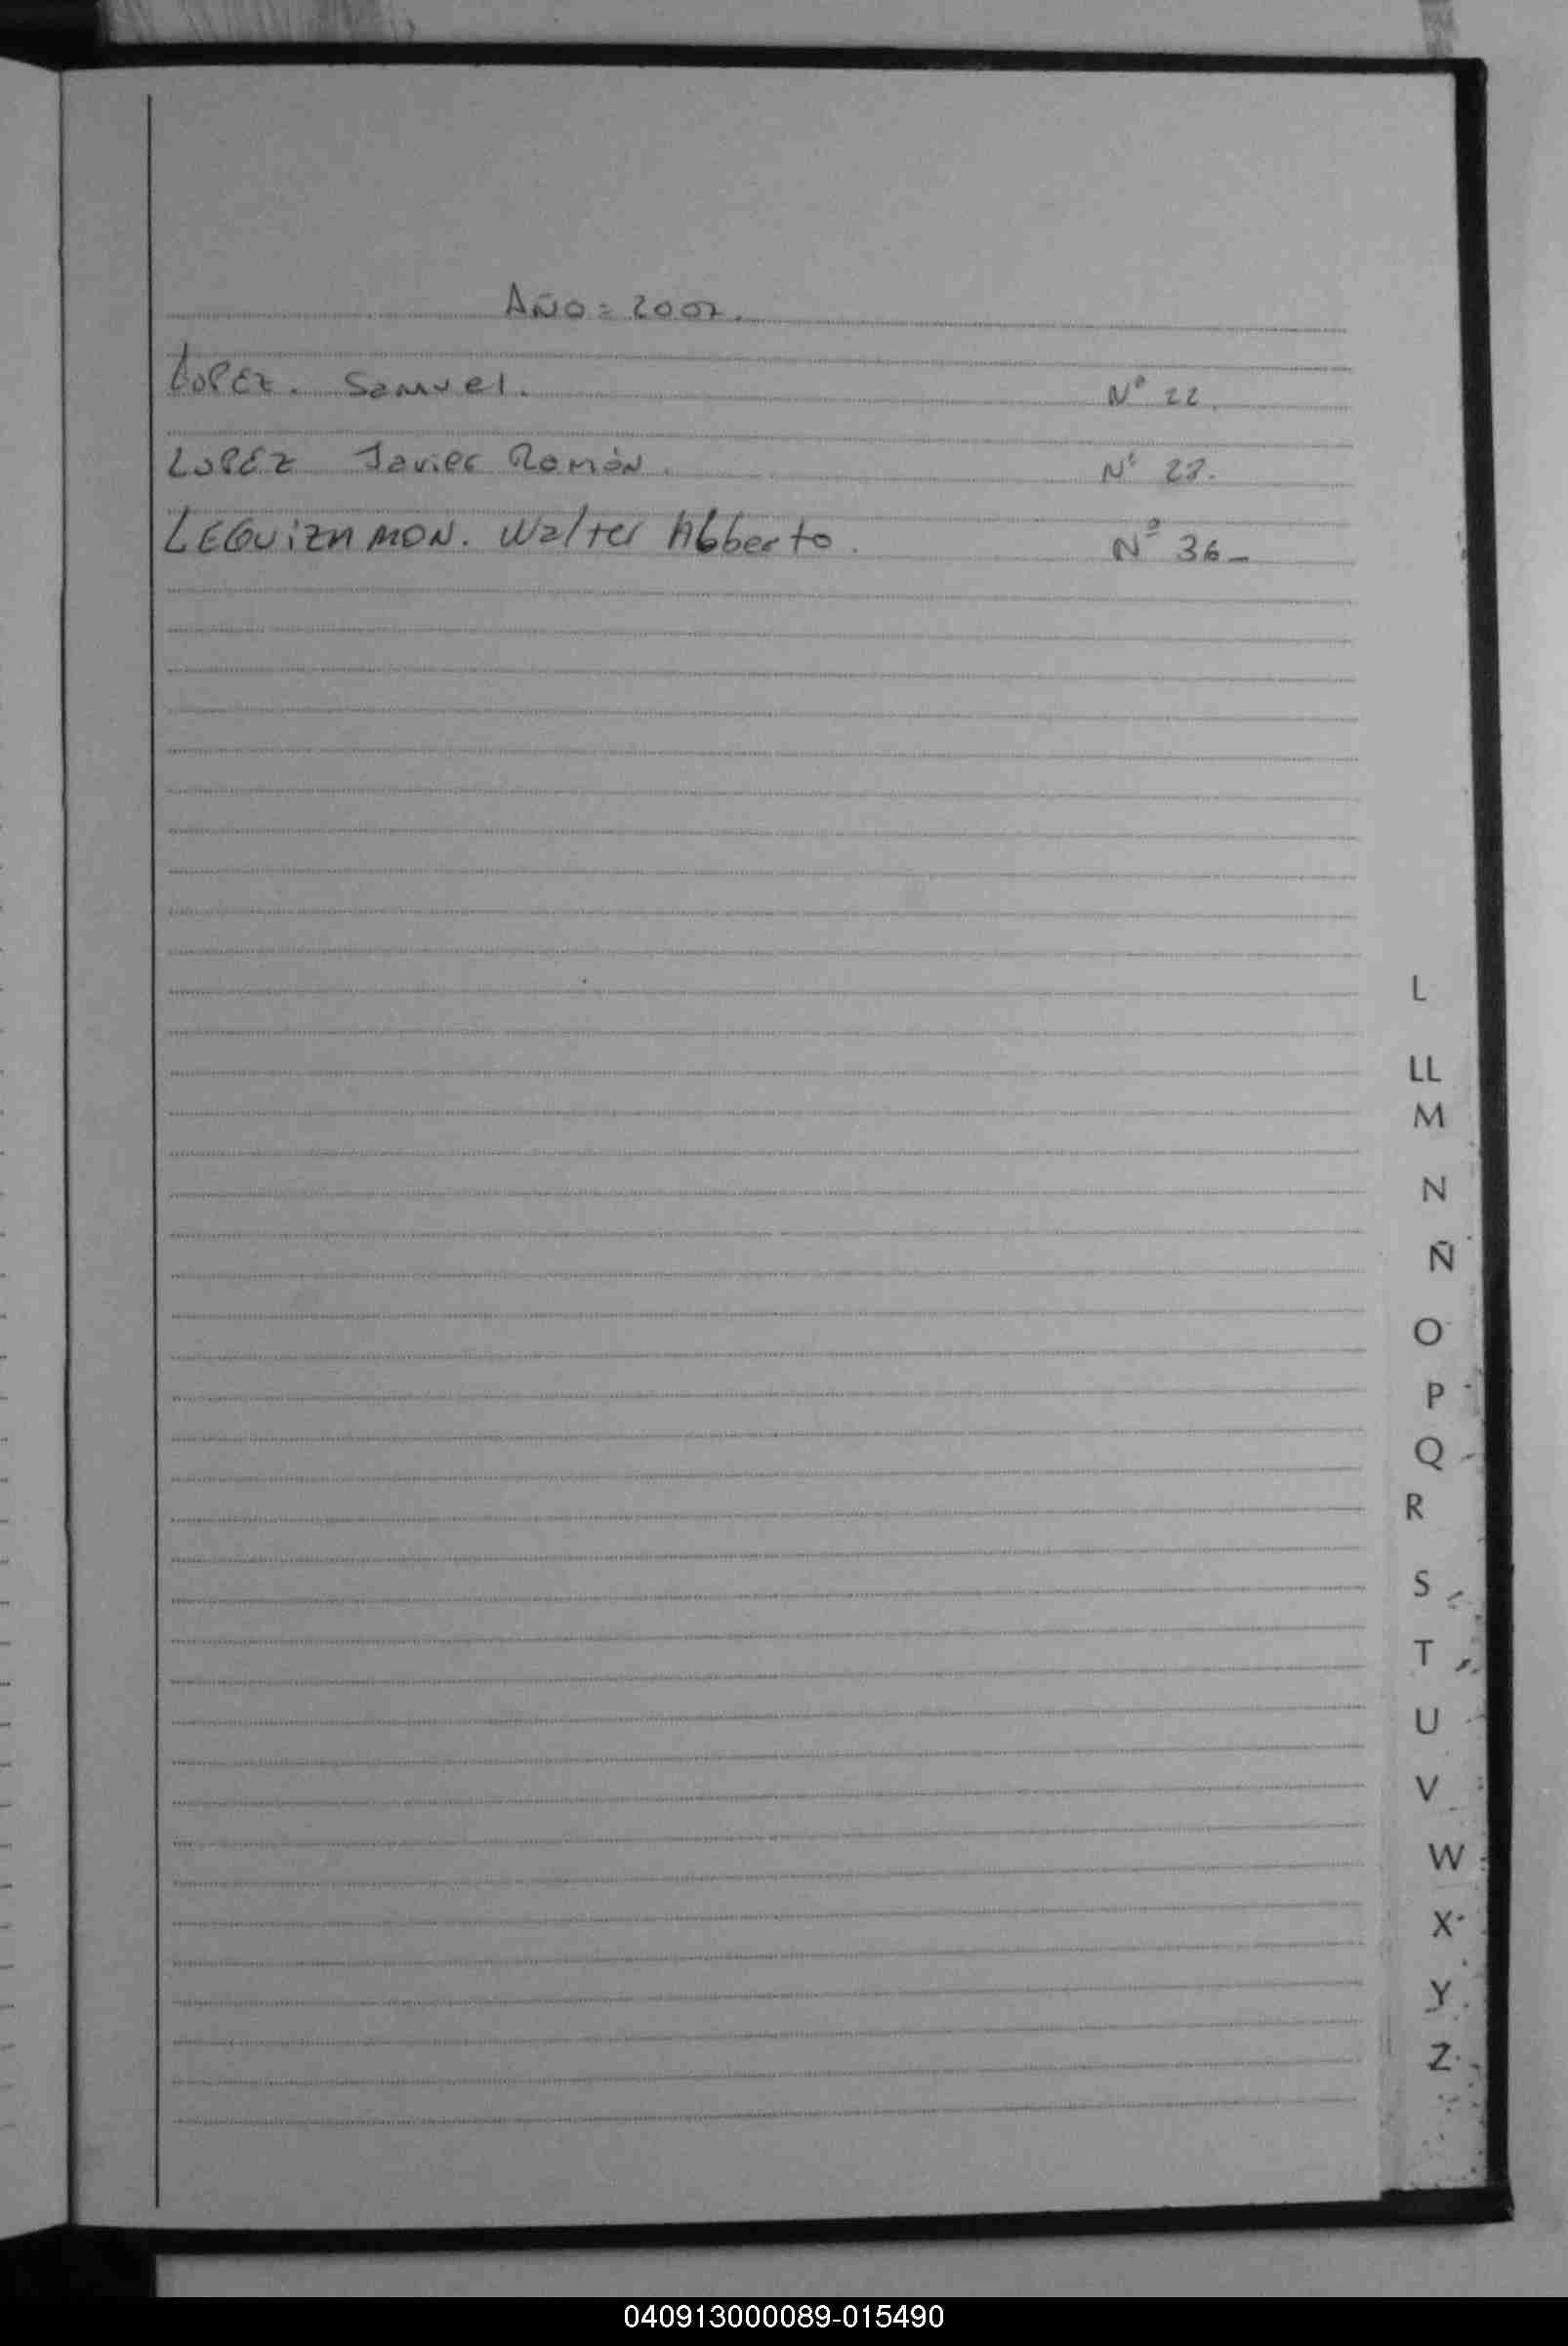 AÑO = 2007.
LOPEZ. Samuel. Nº 22.
LOPEZ Javier Román. Nº 27.
LEGUIZAMON. Walter Alberto. Nº 36_
L
LL
M
N
Ñ
O
P
Q
R
S
T
U
V
W
X
Y
Z
040913000089-015490